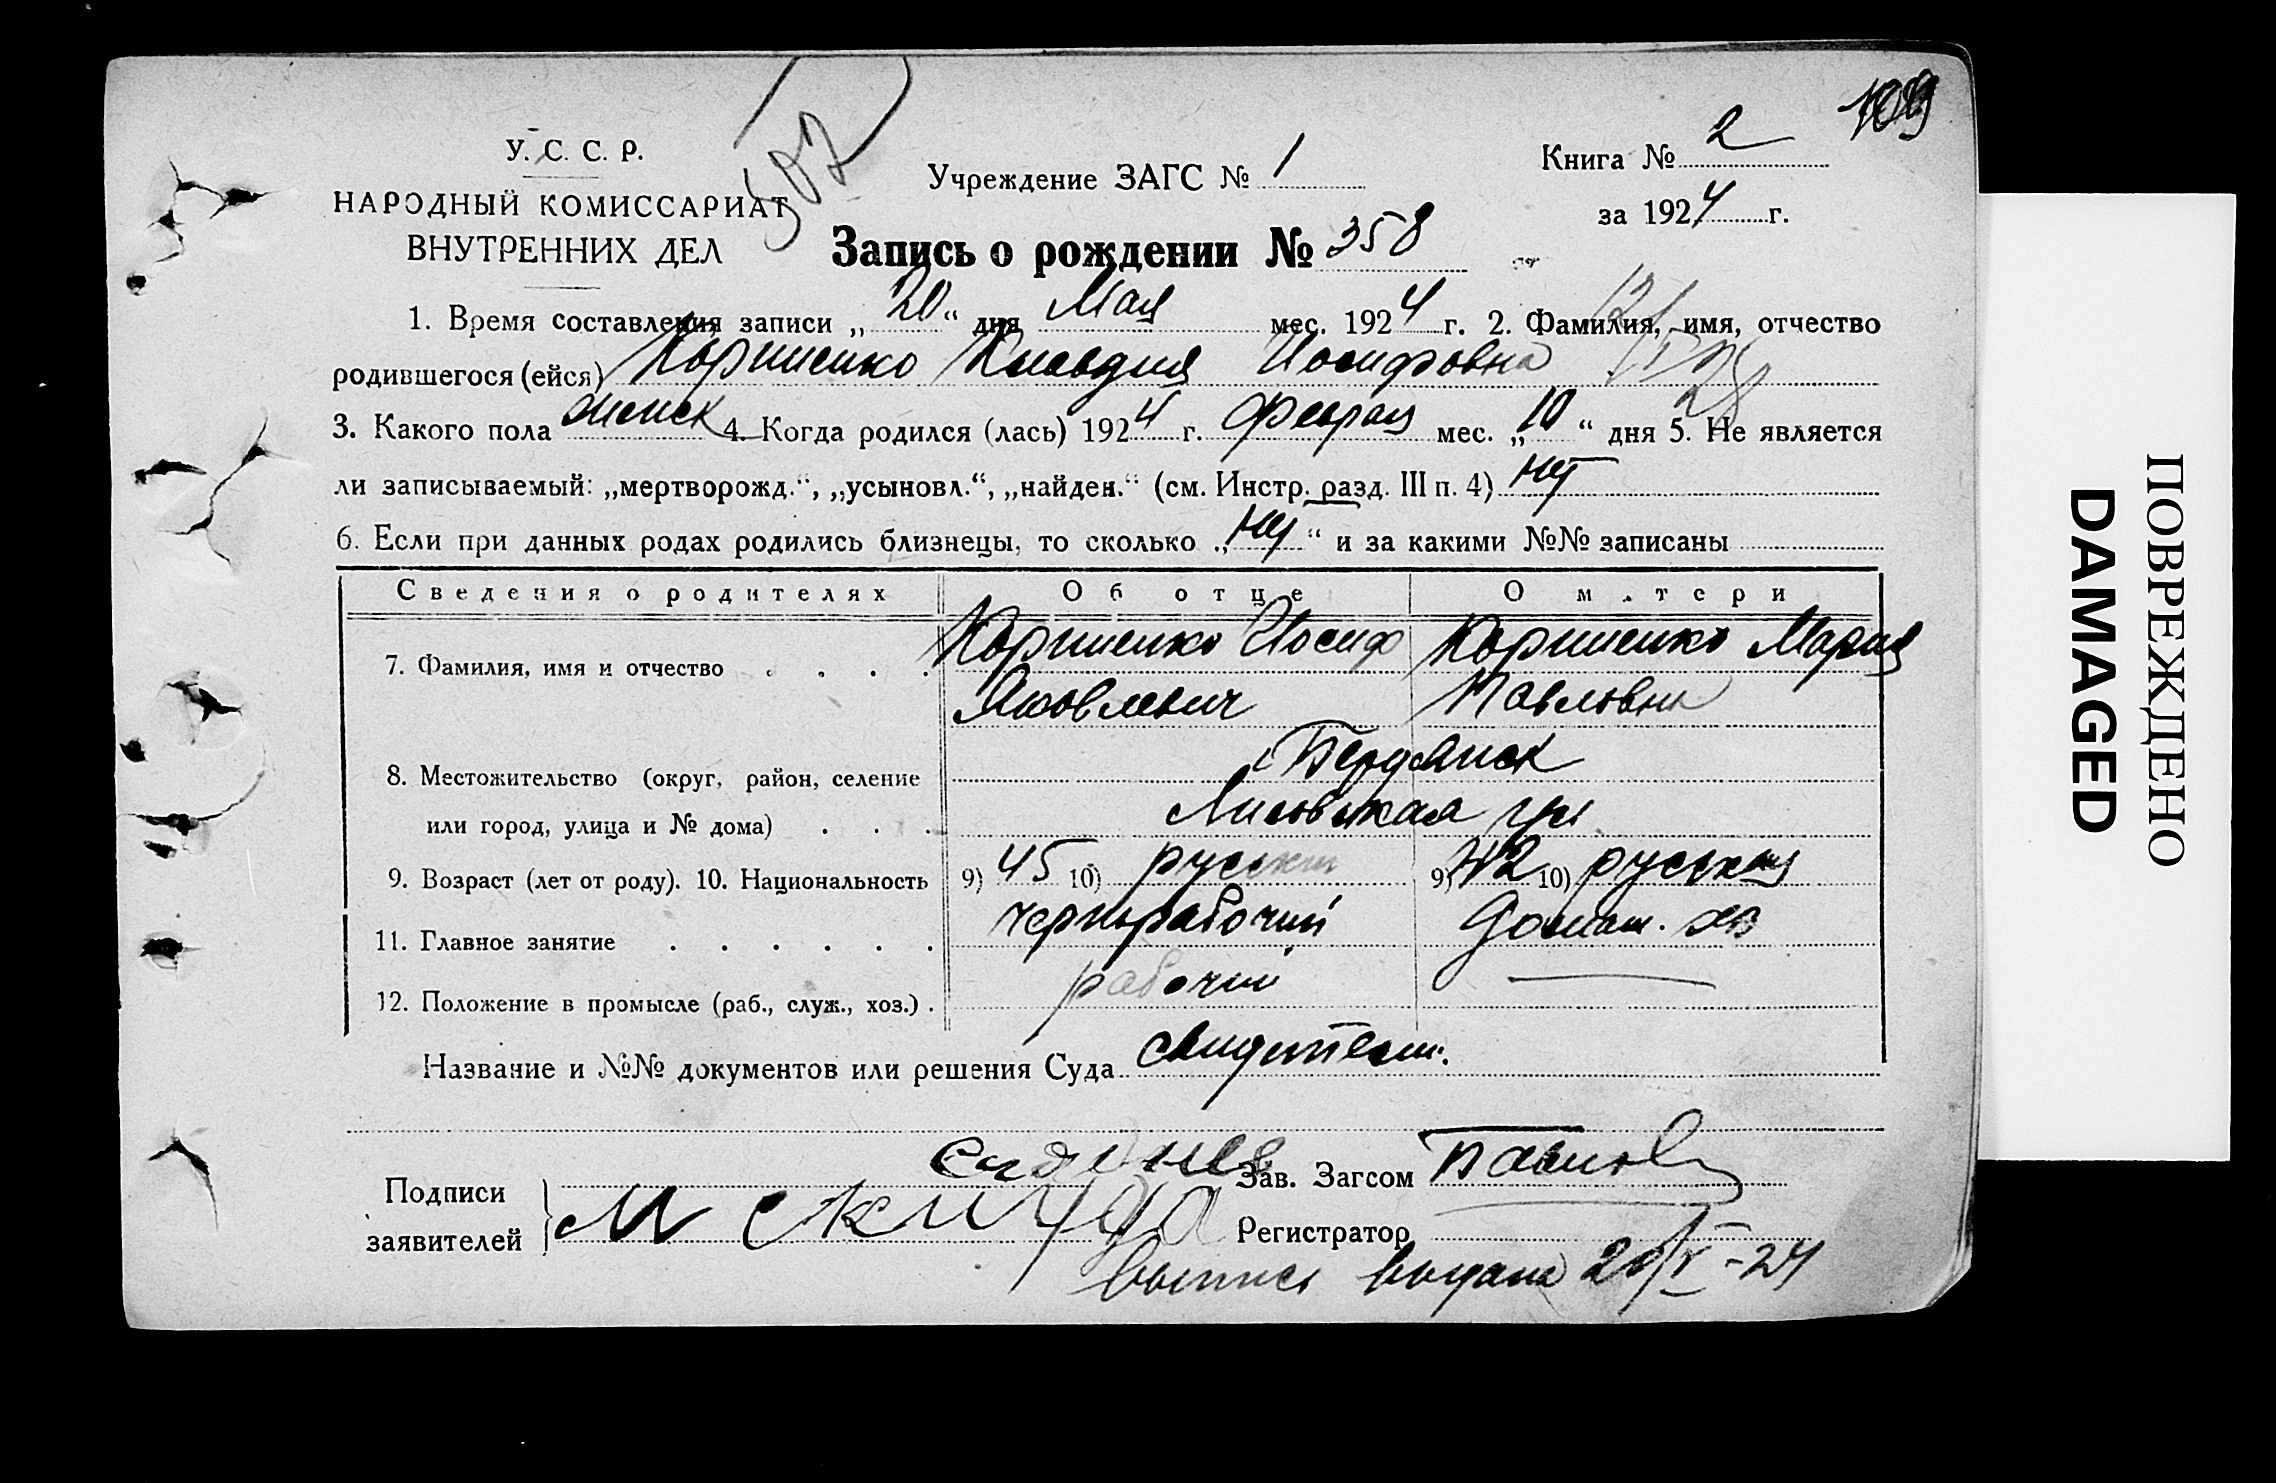 109
У. С. С. Р.
НАРОДНЫЙ КОМИССАРИАТ
ВНУТРЕННИХ ДЕЛ
507
Учреждение ЗАГС № 1
Книга № 2
за 1924 г.
Запись о рождении № 358
1. Время составления записи „20“ дня Мая мес. 1924 г. 2. Фамилия, имя, отчество
родившегося (ейся) Иосифовна
3. Какого пола женск 4. Когда родился (лась) 1924 г. Февраля мес. „10“ дня 5. Не является
ли записываемый: „мертворожд.“, „усыновл.“, „найден.“ (см. Инстр. разд. III п. 4) нет
6. Если при данных родах родились близнецы, то сколько „нет“ и за какими №№ записаны
Сведения о родителях Об отце О матери
7. Фамилия, имя и отчество . . . . Коршенко Иосиф Коршенко Мария
Яковлевич Павловна
8. Местожительство (округ, район, селение Бердянск
или город, улица и № дома) . . . ул
9. Возраст (лет от роду). 10. Национальность 9) 45 10) русский 9) 42 10) русская
11. Главное занятие . . . . . . чернорабочий домаш. хоз
12. Положение в промысле (раб., служ., хоз.) . рабочий —
Название и №№ документов или решения Суда свидетели.
Подписи
заявителей
Зав. Загсом
Регистратор
выпись выдана 20/V-24
ПОВРЕЖДЕНО
DAMAGED